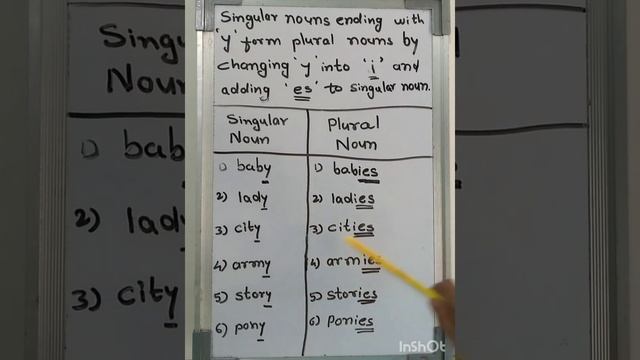 Singular nouns ending with
'y' form plural nouns by
changing 'y' into 'i' and
adding 'es' to singular noun.
Singular Noun
Plural Noun
1) baby
1) babies
2) lady
2) ladies
3) city
3) cities
4) army
4) armies
5) story
5) stories
6) pony
6) ponies
InShOt